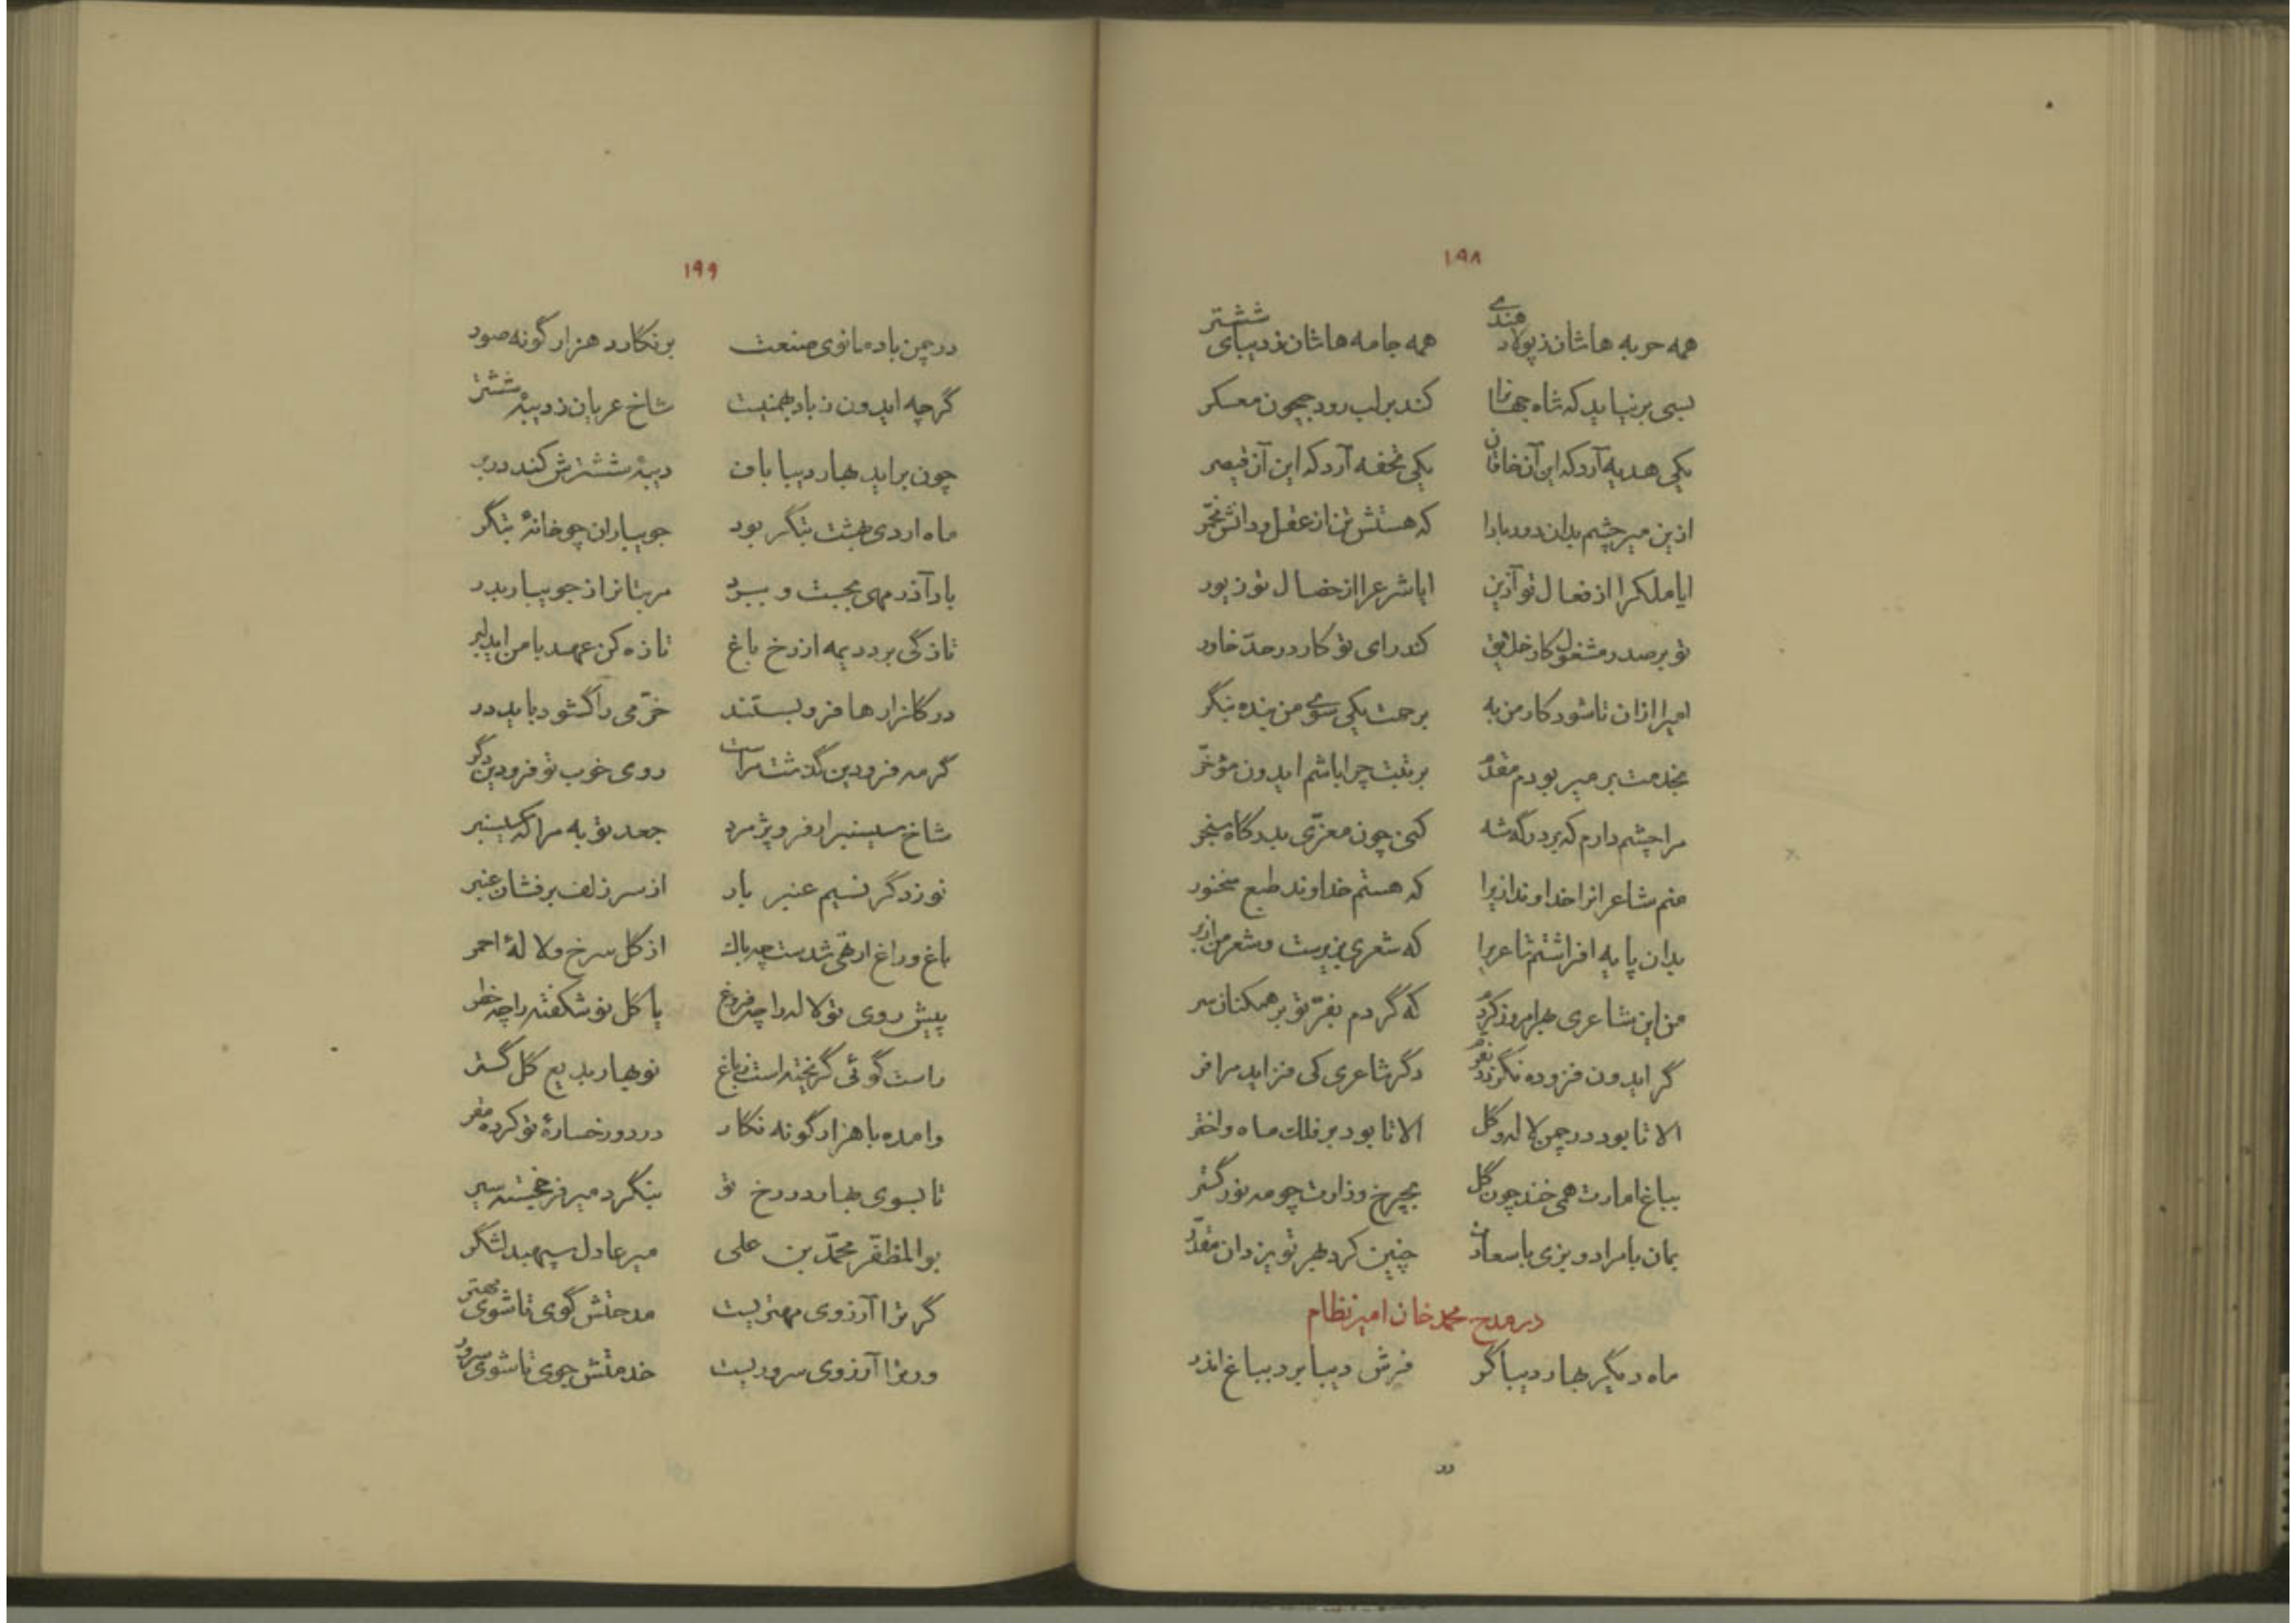 ۱۹۸
همه حربه هاشان ز پولاد هندی همه جامه هاشان ز دیبای ششتر
بسی برنیاید که شاه جهانرا کند بر لب رود جیحون معسکر
یکی هدیه آرد که این آن خاقان یکی تحفه آرد که این آن قیصر
ازین میر چشم بدان دور بادا که هستش تن از عقل و دانش مخمّر
ایا ملکرا از فعال تو آذین ایا شرعرا از خصال تو زیور
تو بر صدر مشغول کار خلایق کند رای تو کار در حدّ خاور
امیرا ازان تا شود کار من به برحمت یکی سوی من بنده بنگر
بخدمت بر میر بودم مقدّم برتبت چرا باشم ایدون مؤخّر
مرا چشم دارم که بر درگه شه کنی چون معزّی بدرگاه سنجر
منم شاعرانرا خداوند ازیرا که هستم خداوند طبع سخنور
بدان پایه افراشتم شاعریرا که شعری بزیرست و شعر من از بر
من این شاعری بهر امروز کردم که گردم بفرّ تو بر همکنان سر
گر ایدون فزوده نگردد بفرّم دگر شاعری کی فزاید مرا فر
الا تا بود در چمن لاله و گل الا تا بود بر فلک ماه و اختر
بباغ امارت همی خند چون گل بچرخ وزارت چو مه نور گستر
بمان با مراد و بزی با سعادت چنین کرد بهر تو یزدان مقدّر
در مدح محمد خان امیر نظام
ماه دیگر بهار دیبا گر فرش دیبا برد بباغ اندر
در
۱۹۹
در چمن باد مانوی صنعت بر نگارد هزار گونه صور
گرچه ایدون ز باد بهمنیست شاخ عریان ز دیبهٔ ششتر
چون براید بهار دیبا باف دیبهٔ ششترش کند در بر
ماه اردی بهشت بتگر بود جویباران چو خانهٔ بتگر
باد آذر مهی بجست و ببرد مر بتانرا ز جویبار بدر
تازگی برد دیمه از رخ باغ تازه کن عهد با من ای دلبر
در گلزارها فرو بستند خرّمی را گشود باید در
گر مه فرودین گذشت مراست روی خوب تو فرودین دگر
شاخ سیسنبر ار فرو پژمرد جعد تو به مرا که سیسنبر
نوزد گر نسیم عنبر بار از سر زلف بر فشان عنبر
باغ و راغ ار تهی شدست چه باک از گل سرخ و لالهٔ احمر
پیش روی تو لاله را چه فروغ یا گل نو شکفته را چه خطر
راست گوئی گریخته است ز باغ نو بهار بدیع گل گستر
وامده با هزار گونه نگار در دو رخسارهٔ تو کرده مقر
تا بسوی بهار در رخ تو بنگرد میر فرّخجسته سیر
بوالمظفّر محمّد بن علی میر عادل سپهبد لشگر
گر ترا آرزوی مهتریست مدحتش گوی تا شوی مهتر
ور ترا آرزوی سروریست خدمتش جوی تا شوی سرور